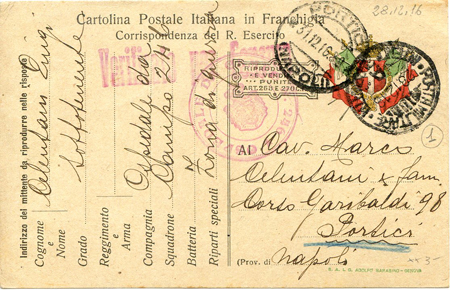 28.12.16
Cartolina Postale Italiana in Franchigia
Corrispondenza del R. Esercito
Verificato
PORTICI
31.12.16
(NAPOLI)
POSTA MILITARE
RIPRODUZIONE
E VENDITA
PUNITE
ART. 268 E 270 C.P.
1
Al Cav. Marco
Celentani e fam.
Corso Garibaldi 98
Portici
(Prov. di Napoli
Indirizzo del mittente da riprodurre nelle risposte
Cognome e Nome Celentani Luigi
Grado Sottotenente
Reggimento e Arma
Compagnia Ospedale da
Squadrone Campo 241
Batteria
Riparti speciali Zona di guerra